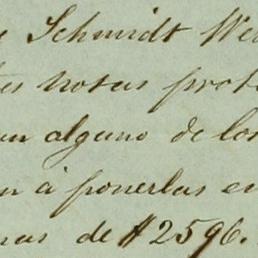 Schmidt We
notas prot
un alguno de los
n á ponerlas en
nas de $2596.